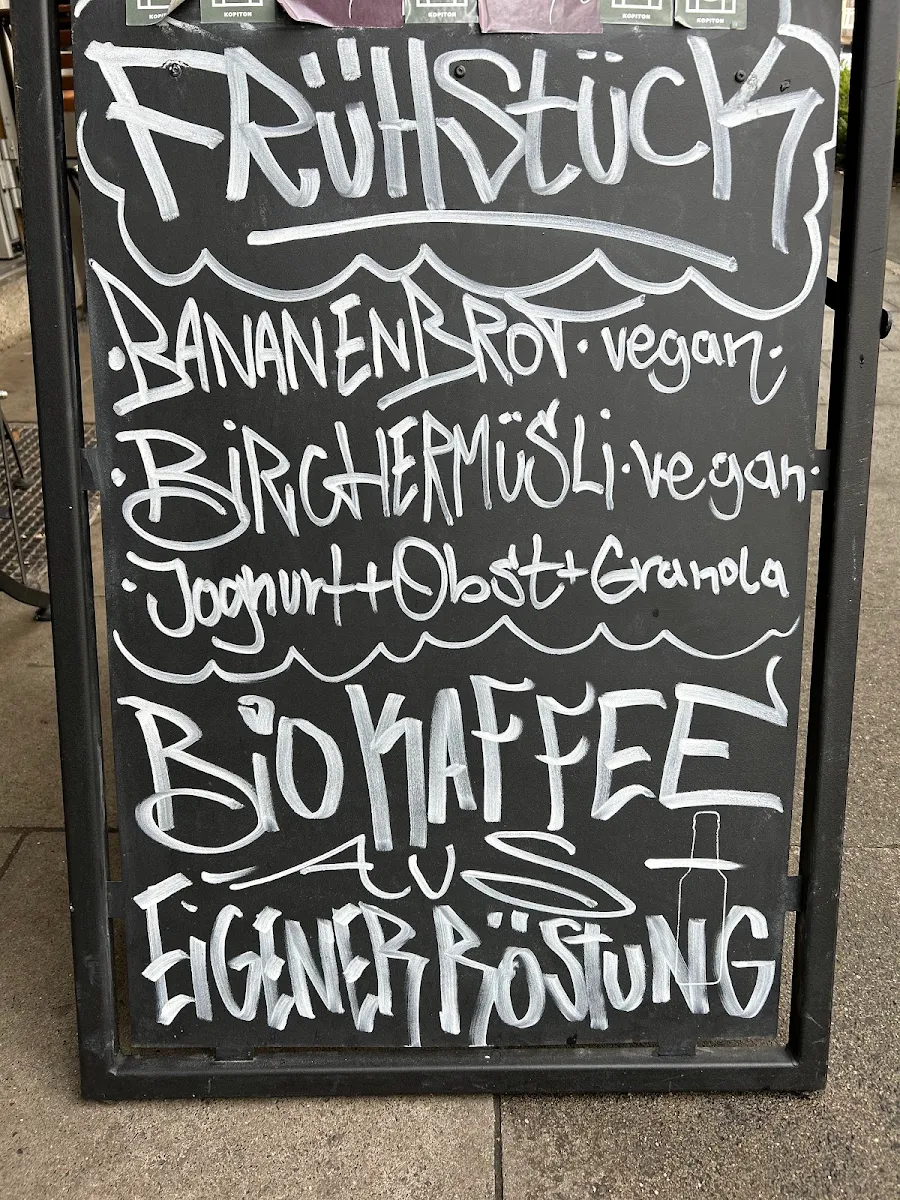 KOPITON KOPITON KOPITON KOPITON KOPITON
FRÜHStÜCK
· BANANENBROT · vegan ·
· BiRCHERMÜSLi · vegan ·
· Joghurt + Obst + Granola
BiO KAFFEE
AUS
EiGENER RÖStUNG